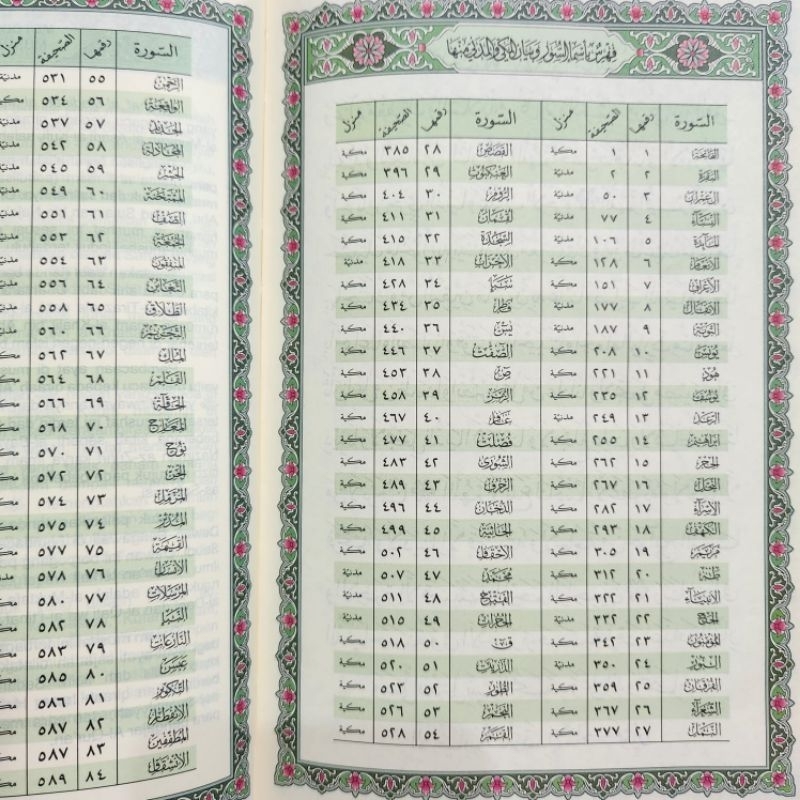 فهرس بأسماء السور وبيان المكي والمدني منها
السورة رقمها الصحيفة منزل السورة رقمها الصحيفة منزل
الفاتحة ١ ١ مكية القصص ٢٨ ٣٨٥ مكية
البقرة ٢ ٢ مدنية العنكبوت ٢٩ ٣٩٦ مكية
آل عمران ٣ ٥٠ مدنية الروم ٣٠ ٤٠٤ مكية
النساء ٤ ٧٧ مدنية لقمان ٣١ ٤١١ مكية
المائدة ٥ ١٠٦ مدنية السجدة ٣٢ ٤١٥ مكية
الأنعام ٦ ١٢٨ مكية الأحزاب ٣٣ ٤١٨ مدنية
الأعراف ٧ ١٥١ مكية سبإ ٣٤ ٤٢٨ مكية
الأنفال ٨ ١٧٧ مدنية فاطر ٣٥ ٤٣٤ مكية
التوبة ٩ ١٨٧ مدنية يس ٣٦ ٤٤٠ مكية
يونس ١٠ ٢٠٨ مكية الصّٰفّٰت ٣٧ ٤٤٦ مكية
هود ١١ ٢٢١ مكية ص ٣٨ ٤٥٣ مكية
يوسف ١٢ ٢٣٥ مكية الزمر ٣٩ ٤٥٨ مكية
الرعد ١٣ ٢٤٩ مدنية غافر ٤٠ ٤٦٧ مكية
ابراهيم ١٤ ٢٥٥ مكية فصلت ٤١ ٤٧٧ مكية
الحجر ١٥ ٢٦٢ مكية الشورى ٤٢ ٤٨٣ مكية
النحل ١٦ ٢٦٧ مكية الزخرف ٤٣ ٤٨٩ مكية
الإسراء ١٧ ٢٨٢ مكية الدخان ٤٤ ٤٩٦ مكية
الكهف ١٨ ٢٩٣ مكية الجاثية ٤٥ ٤٩٩ مكية
مريم ١٩ ٣٠٥ مكية الأحقاف ٤٦ ٥٠٢ مكية
طه ٢٠ ٣١٢ مكية محمد ٤٧ ٥٠٧ مدنية
الأنبياء ٢١ ٣٢٢ مكية الفتح ٤٨ ٥١١ مدنية
الحج ٢٢ ٣٣٢ الحجرات ٤٩ ٥١٥ مدنية
المؤمنون ٢٣ ٣٤٢ مكية ق ٥٠ ٥١٨ مكية
النور ٢٤ ٣٥٠ مدنية الذريت ٥١ ٥٢٠ مكية
الفرقان ٢٥ ٣٥٩ مكية الطور ٥٢ ٥٢٣ مكية
الشعراء ٢٦ ٣٦٧ مكية النجم ٥٣ ٥٢٦ مكية
النمل ٢٧ ٣٧٧ مكية القمر ٥٤ ٥٢٨ مكية
السورة رقمها الصحيفة منزل
الرحمن ٥٥ ٥٣١
الواقعة ٥٦ ٥٣٤
الحديد ٥٧ ٥٣٧
المجادلة ٥٨ ٥٤٢
الحشر ٥٩ ٥٤٥
الممتحنة ٦٠ ٥٤٩
الصف ٦١ ٥٥١
الجمعة ٦٢ ٥٥٣
المنفقون ٦٣ ٥٥٤
التغابن ٦٤ ٥٥٦
الطلاق ٦٥ ٥٥٨
التحريم ٦٦ ٥٦٠
الملك ٦٧ ٥٦٢
القلم ٦٨ ٥٦٤
الحاقة ٦٩ ٥٦٦
المعارج ٧٠ ٥٦٨
نوح ٧١ ٥٧٠
الجن ٧٢ ٥٧٢
المزمل ٧٣ ٥٧٤
المدثر ٧٤ ٥٧٥
القيمة ٧٥ ٥٧٧
٧٦ ٥٧٨
المرسلات ٧٧ ٥٨٠
النبأ ٧٨ ٥٨٢
النازعات ٧٩ ٥٨٣
عبس ٨٠ ٥٨٥
التكوير ٨١ ٥٨٦
الانفطار ٨٢ ٥٨٧
المطففين ٨٣ ٥٨٧
الانشقاق ٨٤ ٥٨٩